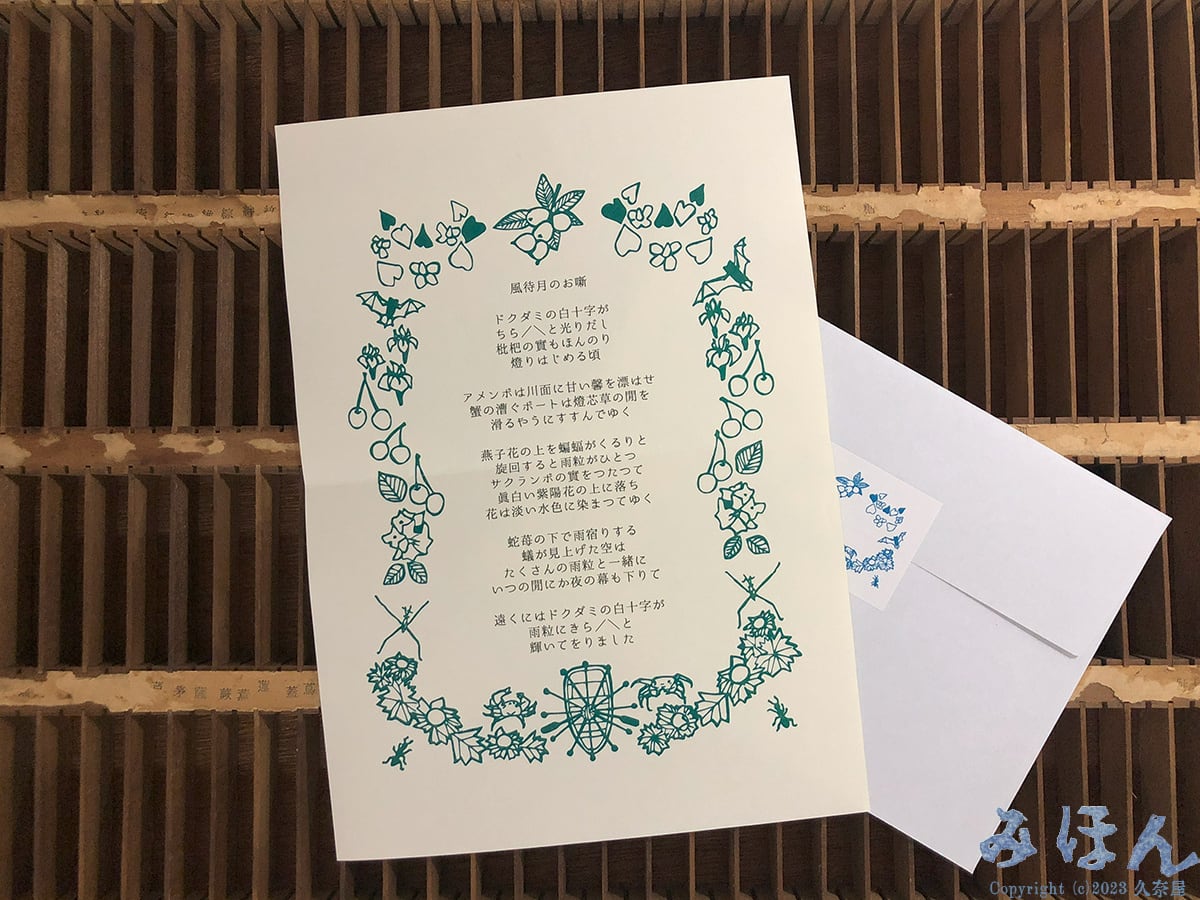 風待月のお噺
ドクダミの白十字が
ちら／＼と光りだし
枇杷の實もほんのり
燈りはじめる頃
アメンボは川面に甘い馨を漂はせ
蟹の漕ぐボートは燈芯草の間を
滑るやうにすすんでゆく
燕子花の上を蝙蝠がくるりと
旋回すると雨粒がひとつ
サクランボの實をつたつて
眞白い紫陽花の上に落ち
花は淡い水色に染まつてゆく
蛇苺の下で雨宿りする
蟻が見上げた空は
たくさんの雨粒と一緒に
いつの間にか夜の幕も下りて
遠くにはドクダミの白十字が
雨粒にきら／＼と
輝いてをりました
みほん
Copyright (c)2023 久奈屋